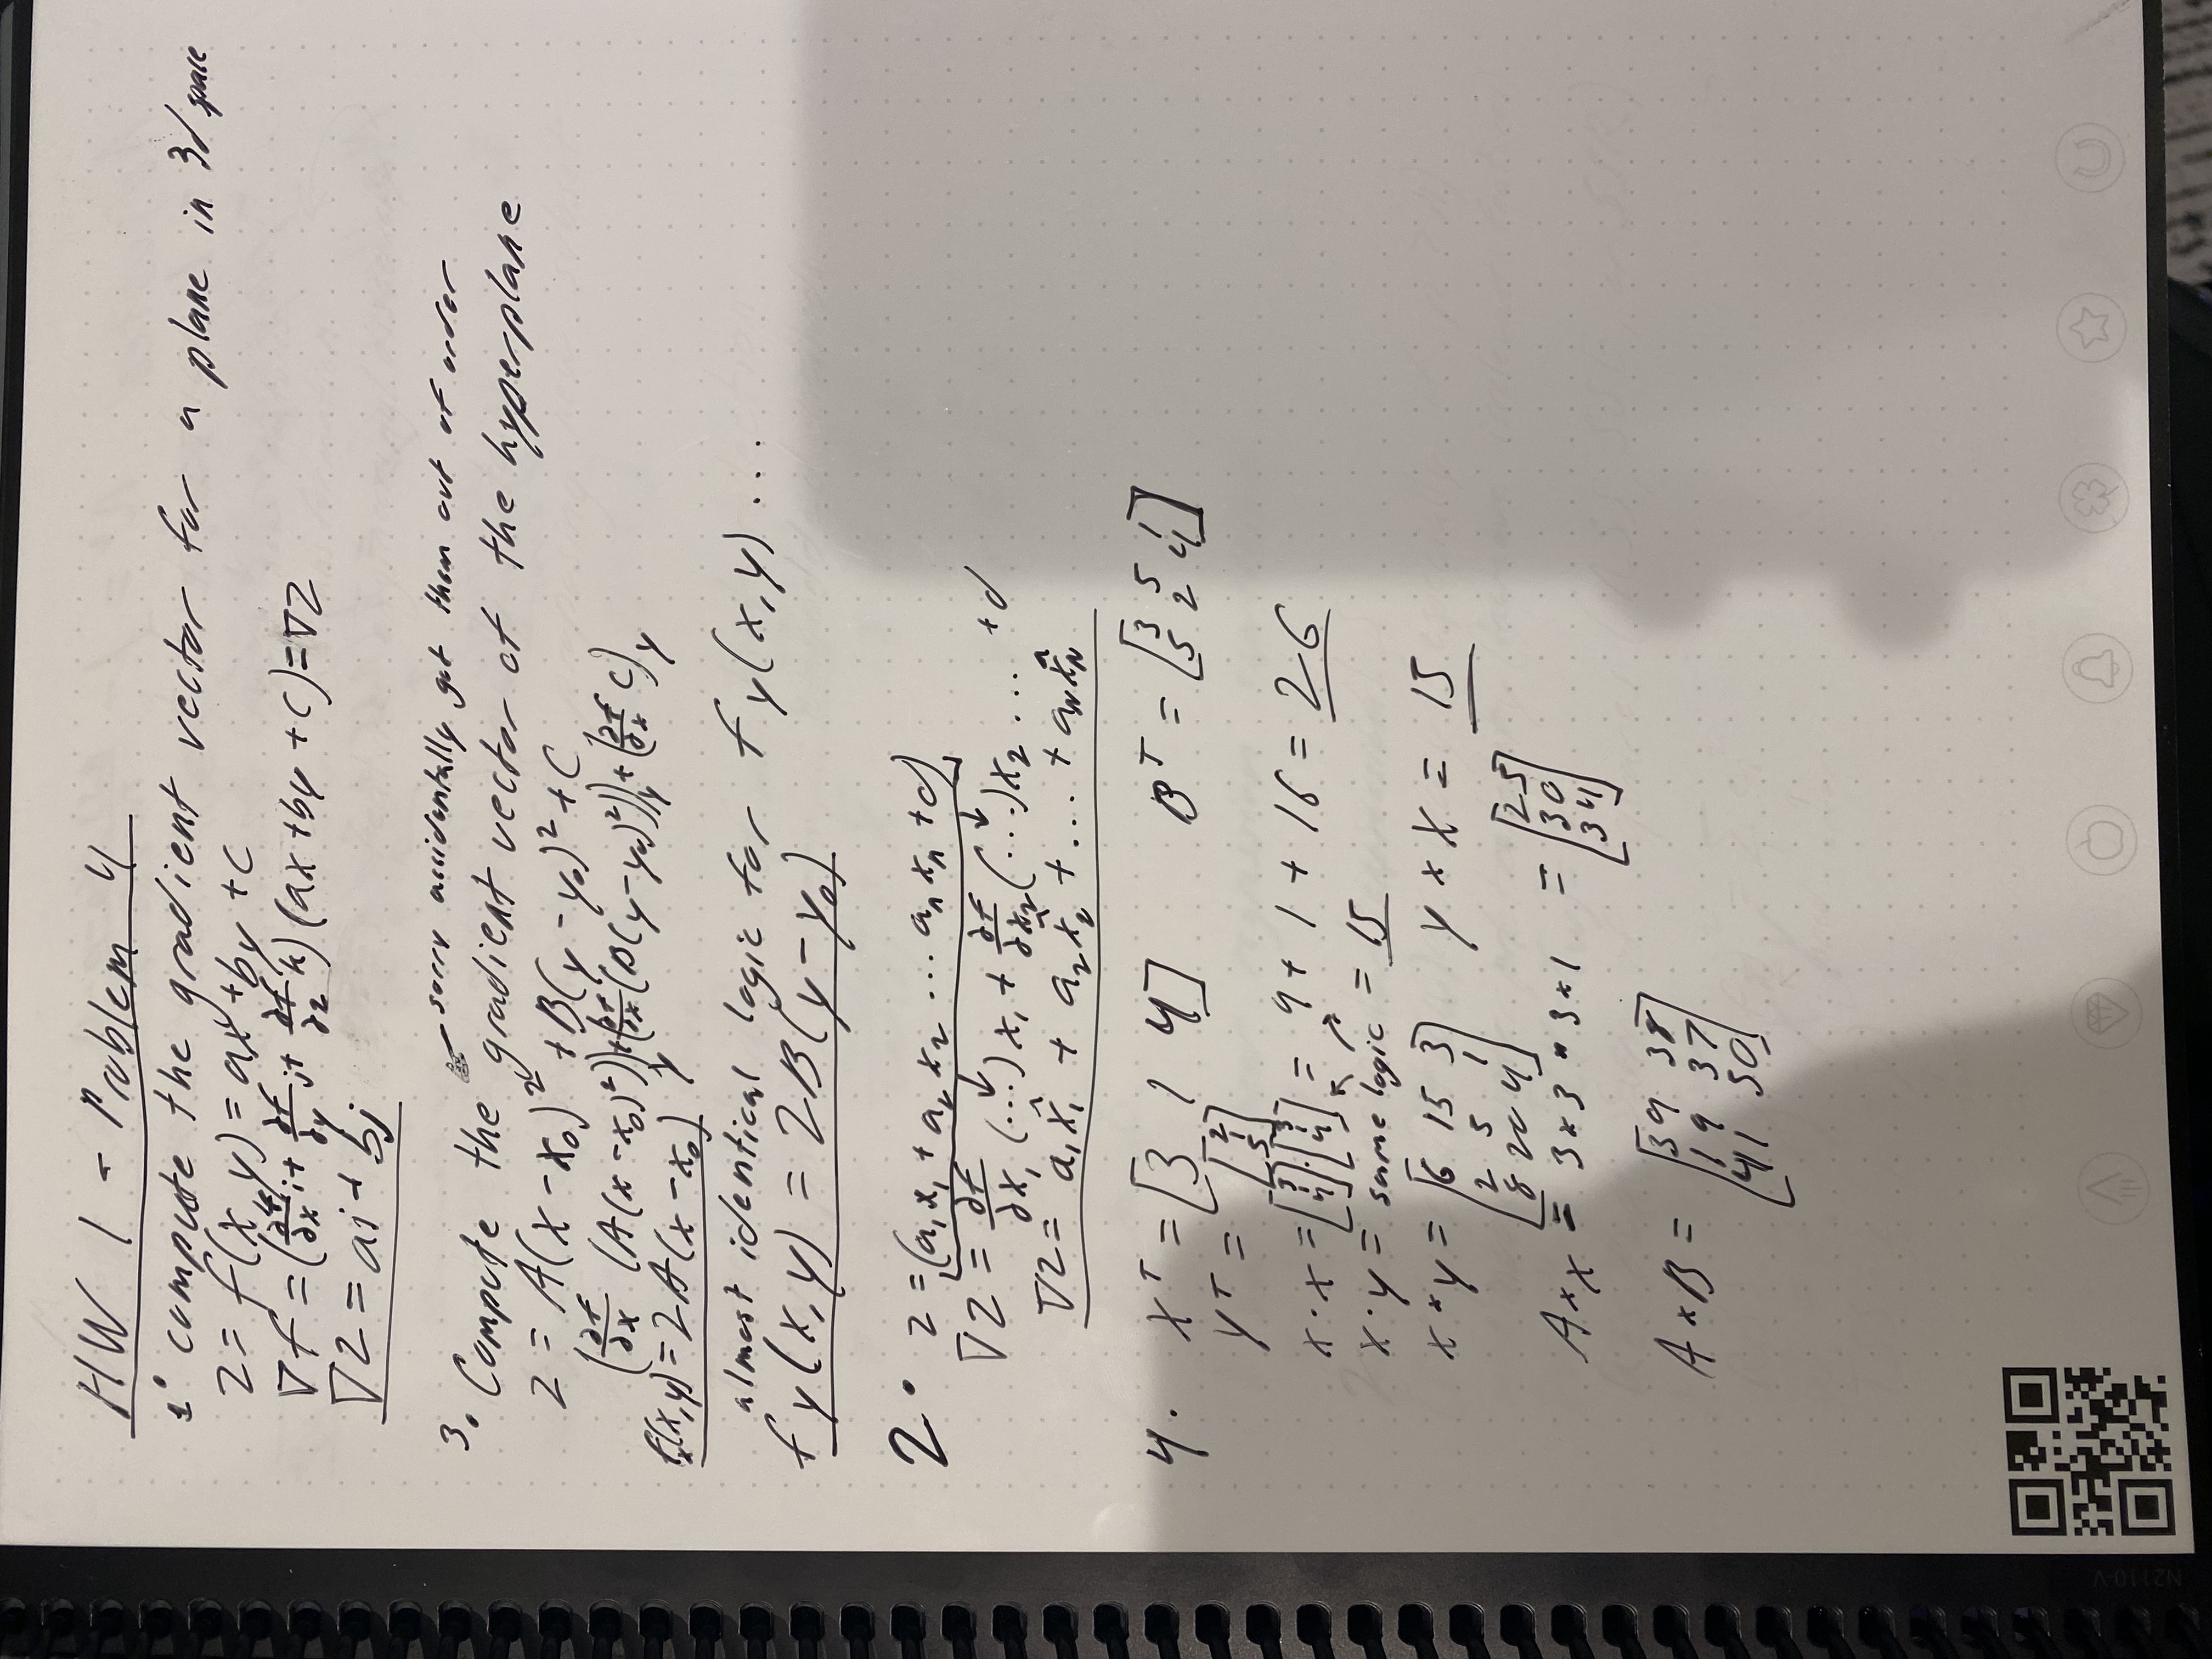 HW 1 - Problem 4
1. compute the gradient vector for a plane in 3d space
z = f(x, y) = ax + by + c
∇f = (∂f/∂x i + ∂f/∂y j + ∂f/∂z k) (ax + by + c) = ∇z
∇z = ai + bj
sorry accidentally got them out of order
3. Compute the gradient vector of the hyperplane
z = A(x - x₀)² + B(y - y₀)² + C
(∂f/∂x (A(x - x₀)²))y + (∂f/∂x (B(y - y₀)²))y + (∂f/∂x C)y
fₓ(x, y) = 2A(x - x₀)
almost identical logic for f_y(x, y) ...
f_y(x, y) = 2B(y - y₀)
2. z = (a₁x₁ + a₂x₂ ... aₙxₙ + d)
∇z = ∂f/∂x₁ (...) x₁ + ∂f/∂x₂ (...) x₂ ... + d
∇z = a₁x̂₁ + a₂x̂₂ + ... + a_N x̂_N
4. Xᵀ = [3 1 4] Bᵀ = [3 5 1; 5 2 4]
Yᵀ = [2; 1; 5]
x · x = [3; 1; 4] · [3; 1; 4] = 9 + 1 + 16 = 26
x · y = same logic = 15
x * y = [6 15 3; 2 5 1; 8 20 4] y × x = 15
A × x = 3 × 3 * 3 × 1 = [25; 30; 34]
A × B = [39 38; 19 37; 41 50]
N2110-V